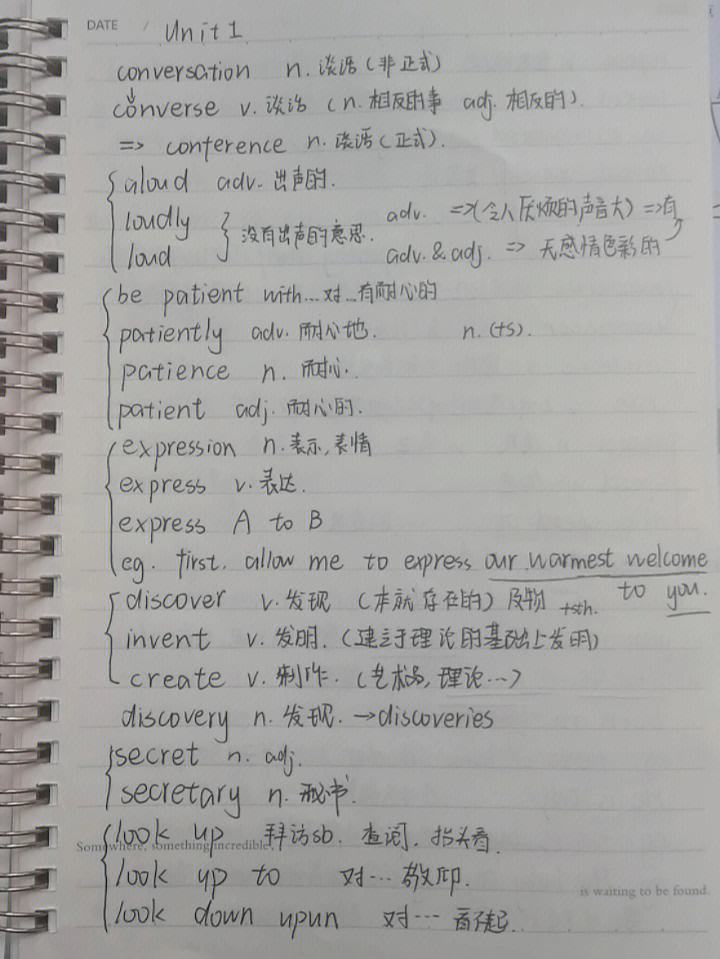 DATE / Unit 1
conversation n. 谈话(非正式)
converse v. 谈话 (n. 相反的事 adj. 相反的).
=> conference n. 谈话(正式).
aloud adv. 出声的.
loudly adv. =>(令人厌烦的声音大) =>有
loud } 没有出声的意思. adv. & adj. => 无感情色彩的
be patient with... 对...有耐心的
patiently adv. 耐心地. n. (+s).
patience n. 耐心.
patient adj. 耐心的.
expression n. 表示, 表情
express v. 表达.
express A to B
eg. first, allow me to express our warmest welcome
to you.
discover v. 发现 (本就存在的) 及物 +sth.
invent v. 发明. (建立于理论的基础上发明)
create v. 制作. (艺术品, 理论...)
discovery n. 发现. →discoveries
secret n. adj.
secretary n. 秘书.
look up 拜访sb. 查阅. 抬头看.
Somewhere, something incredible,
look up to 对... 敬仰.
is waiting to be found.
look down upun 对...